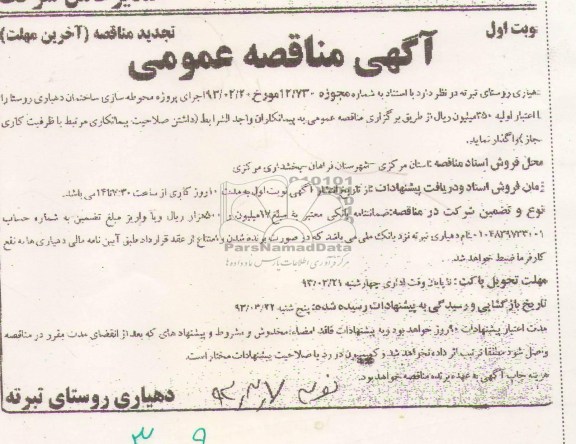 نوبت اول
تجدید مناقصه (آخرین مهلت)
آگهی مناقصه عمومی
دهیاری روستای تبرته در نظر دارد با استناد به شماره مجوزه ۱۲/۷۳۰ مورخ ۹۳/۰۲/۲۰ اجرای پروژه محوطه سازی ساختمان دهیاری روستا را
با اعتبار اولیه ۳۵۰ میلیون ریال از طریق برگزاری مناقصه عمومی به پیمانکاران واجد الشرایط (داشتن صلاحیت پیمانکاری مرتبط با ظرفیت کاری
مجاز) واگذار نماید.
محل فروش اسناد مناقصه: استان مرکزی - شهرستان فراهان - بخشداری مرکزی
زمان فروش اسناد و دریافت پیشنهادات: از تاریخ انتشار آگهی نوبت اول به مدت ۱۰ روز کاری از ساعت ۷:۳۰ تا ۱۴ می باشد.
نوع و تضمین شرکت در مناقصه: ضمانتنامه بانکی معتبر به مبلغ ۱۷ میلیون و ۵۰۰ هزار ریال ویا واریز مبلغ تضمین به شماره حساب
۰۱۰۴۸۲۹۷۲۳۰۰۱ بنام دهیاری تبرته نزد بانک ملی می باشد که در صورت برنده شدن و امتناع از عقد قرارداد طبق آیین نامه مالی دهیاری ها به نفع
کارفرما ضبط خواهد شد.
مهلت تحویل پاکت: تا پایان وقت اداری چهارشنبه ۹۳/۰۳/۲۱
تاریخ بازگشایی و رسیدگی به پیشنهادات رسیده شده: پنج شنبه ۹۳/۰۳/۲۲
مدت اعتبار پیشنهادات ۹۰ روز خواهد بود و به پیشنهادات فاقد امضاء، مخدوش و مشروط و پیشنهاد های که بعد از انقضای مدت مقرر در مناقصه
واصل شود مطلقا ترتیب اثر داده نخواهد شد و کمیسیون در رد یا صلاحیت پیشنهادات مختار است.
هزینه چاپ آگهی به عهده برنده مناقصه خواهد بود.
دهیاری روستای تبرته
۹۳/۳/۷
ParsNamadData
مرکز فرآوری اطلاعات پارس نماد داده ها
۳ ۹